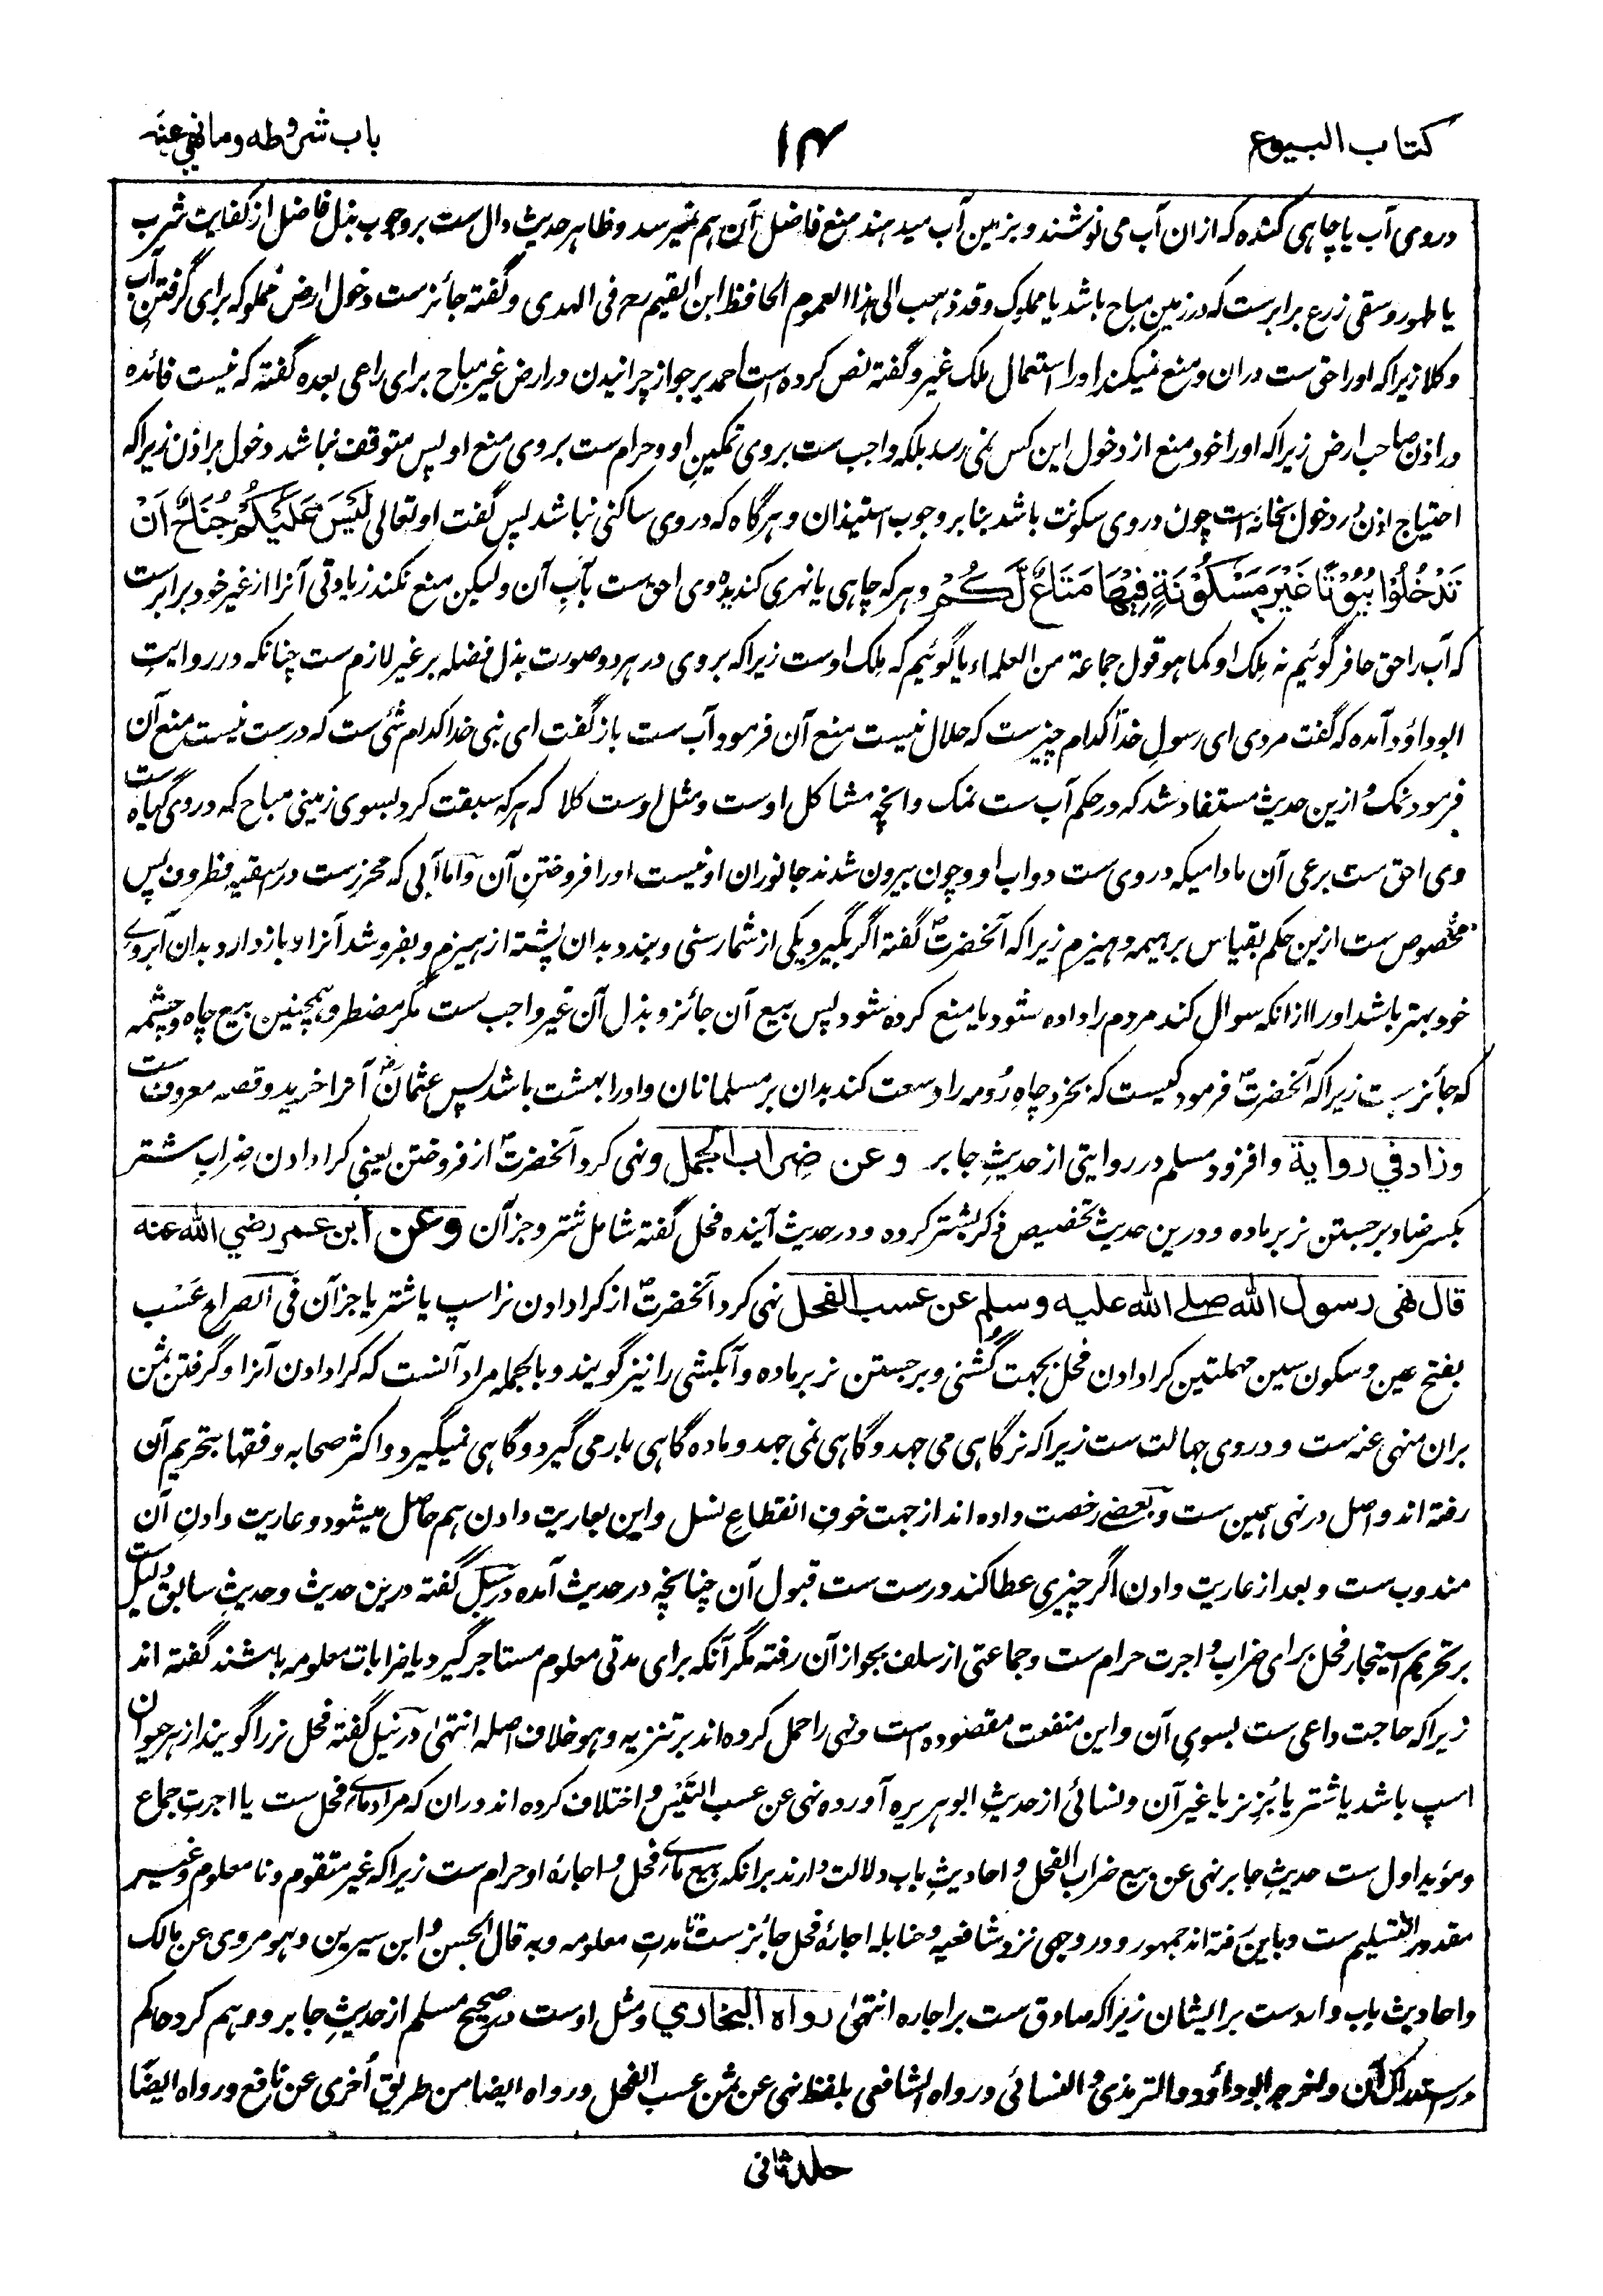 کتاب البیوع
۱۴
باب شروطه وما نهي عنه
دروی آب یا چاهی کنده که ازان آب می نوشند و بزمین آب میدهند منع فاضل آن هم نمیرسد و ظاهر حدیث دال ست بر وجوب بذل فاضل از کفایت شرب
یا طهور و سقی زرع برابرست که در زمین مباح باشد یا مملوک وقد ذهب الی هذا العموم الحافظ ابن القیم رح فی الهدی و گفته جائزست دخول ارض مملوکه برای گرفتن آب
و کلا زیراکه اورا حق ست دران و منع نمیکند اورا استعمال ملک غیر و گفته نص کرده است احمد بر جواز چرانیدن در ارض غیر مباح برای راعی بعده گفته که نیست فائده
در اذن صاحب ارض زیراکه اورا خود منع از دخول این کس نمی رسد بلکه واجب ست بروی تمکین او و حرام ست بروی منع او پس متوقف نباشد دخول بر اذن زیراکه
احتیاج اذن در دخول بخانه است چون دروی سکونت باشد بنا بر وجوب استیذان و هرگاه که دروی ساکنی نباشد پس گفت او تعالی لَیْسَ عَلَیْکُمْ جُنَاحٌ اَنْ
تَدْخُلُوْا بُیُوْتًا غَیْرَ مَسْکُوْنَةٍ فِیْهَا مَتَاعٌ لَّکُمْ و هر که چاهی یا نهری کندیده وی احق ست بآب آن ولیکن منع نکند زیادتی آنرا از غیر خود برابرست
که آب را حق حافر گوئیم نه ملک او کما هو قول جماعة من العلماء یا گوئیم که ملک اوست زیراکه بروی در هر دو صورت بذل فضله بر غیر لازم ست چنانکه در روایت
ابوداؤد آمده که گفت مردی ای رسول خدا کدام چیزست که حلال نیست منع آن فرمود آب ست باز گفت ای نبی خدا کدام شئ ست که درست نیست منع آن
فرمود نمک و ازین حدیث مستفاد شد که در حکم آب ست نمک و انچه مشاکل اوست و مثل اوست کلا که هر که سبقت کرد بسوی زمینی مباح که دروی گیاه ست
وی احق ست برعی آن مادامیکه دروی ست دواب او و چون بیرون شدند جانوران او نیست اورا فروختن آن و اما آبی که محرزست در اسقیه و ظروف پس
مخصوص ست ازین حکم بقیاس بر هیمه و هیزم زیراکه آنحضرت گفته اگر بگیرد یکی از شما رسنی و بندد بدان پشته از هیزم و بفروشد آنرا و باز دارد بدان آبروے
خود بهتر باشد اورا ازانکه سوال کند مردم را داده شود یا منع کرده شود پس بیع آن جائز و بذل آن غیر واجب ست مگر مضطر و همچنین بیع چاه و چشمه
که جائزست زیراکه آنحضرت فرمود کیست که بخرد چاه رومه را وسعت کند بدان بر مسلمانان و اورا بهشت باشد پس عثمان آنرا خرید و قصه معروف ست
وزاد في روایة و افزود مسلم در روایتی از حدیث جابر وعن ضراب الجمل و نهی کرد آنحضرت از فروختن یعنی کرا دادن ضراب شتر
بکسر ضاد بر جستن نر بر ماده و درین حدیث تخصیص ذکر بشتر کرده و در حدیث آینده فحل گفته شامل شتر و جز آن وعن ابن عمر رضي الله عنه
قال نهی رسول الله صلے الله علیه وسلم عن عسب الفحل نهی کرد آنحضرت از کرا دادن نر اسپ یا شتر یا جز آن فی الصراح عسب
بفتح عین و سکون سین مهملتین کرا دادن فحل بجهت گشنی و بر جستن نر بر ماده و آبکشی را نیز گویند و بالجمله مراد آنست که کرا دادن آنرا و گرفتن ثمن
بران منهی عنه ست و دروی جهالت ست زیراکه نر گاهی می جهد و گاهی نمی جهد و ماده گاهی بار می گیرد و گاهی نمیگیرد و اکثر صحابه و فقها بتحریم آن
رفته اند و اصل در نهی همین ست و بعضے رخصت داده اند از جهت خوف انقطاع نسل و این بعاریت دادن هم حاصل میشود و عاریت دادن آن
مندوب ست و بعد از عاریت دادن اگر چیزی عطا کند درست ست قبول آن چنانچه در حدیث آمده در سبل گفته درین حدیث و حدیث سابق دلیل ست
بر تحریم استیجار فحل برای ضراب و اجرت حرام ست و جماعتی از سلف بجواز آن رفته مگر آنکه برای مدتی معلوم مستاجر گیرد یا ضرابات معلومه باشند گفته اند
زیراکه حاجت داعی ست بسوی آن و این منفعت مقصوده است و نهی را حمل کرده اند بر تنزیه و هو خلاف اصله انتهیٰ در نیل گفته فحل نر را گویند از هر حیوان
اسپ باشد یا شتر یا بز نر یا غیر آن و نسائی از حدیث ابوهریره آورده نهی عن عسب التیس و اختلاف کرده اند دران که مراد ماے فحل ست یا اجرت جماع
و مؤید اول ست حدیث جابر نهی عن بیع ضراب الفحل و احادیث باب دلالت دارند برانکه بیع ماے فحل و اجارهٔ او حرام ست زیراکه غیر متقوم و نا معلوم و غیر
مقدور التسلیم ست و باین رفته اند جمهور و در وجهی نزد شافعیه و حنابله اجارهٔ فحل جائزست تا مدت معلومه و به قال الحسن و ابن سیرین و هو مروی عن مالک
و احادیث باب واردست بر ایشان زیراکه صادق ست بر اجاره انتهیٰ رواه البخاري و مثل اوست در صحیح مسلم از حدیث جابر و وهم کرد حاکم
در استدراک آن و اخرجه ابوداؤد والترمذی و النسائی و رواه الشافعی بلفظ نهی عن ثمن عسب الفحل و رواه ایضا من طریق اخری عن نافع و رواه ایضًا
جلد ثانی